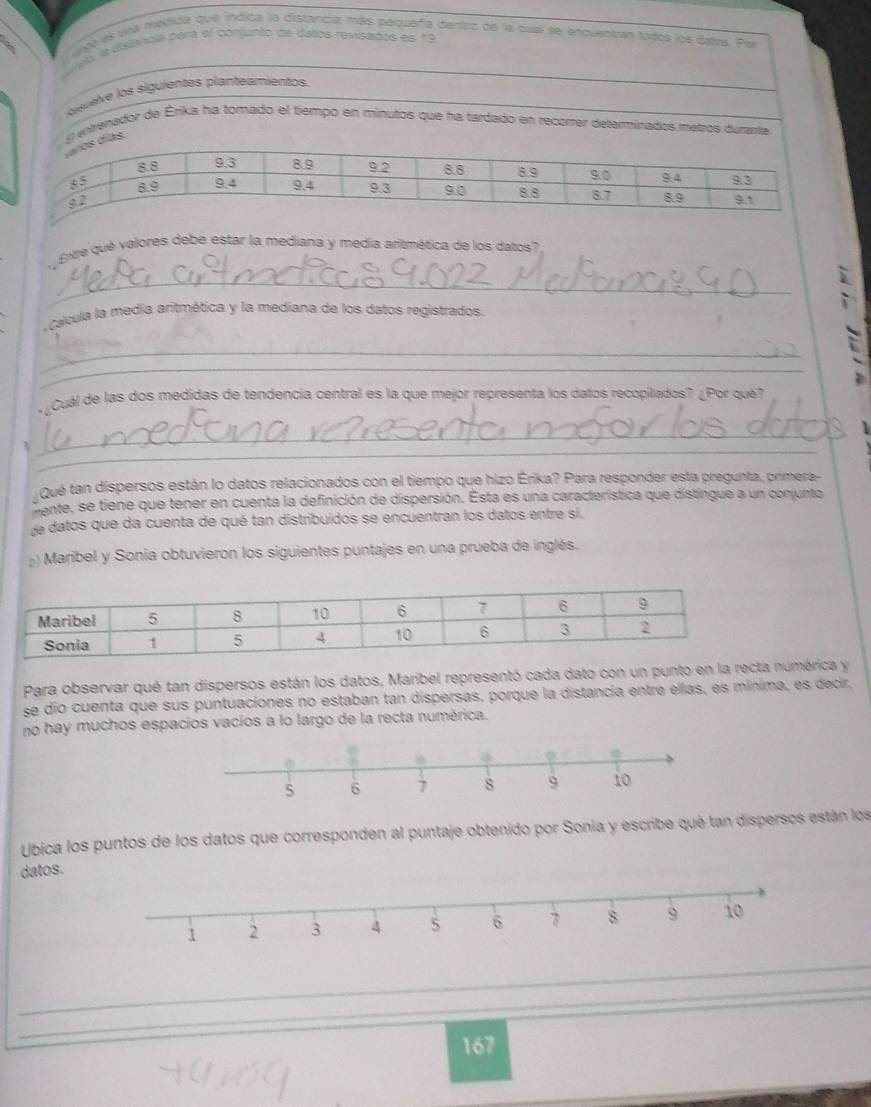 es una medida que indica la distancia más pequeña dentro de la cual se encuentran todos los datos. Por
la distancia para el conjunto de datos revisados es 19.
los siguientes planteamientos.
entrenador de Érika ha tomado el tiempo en minutos que ha tardado en recorrer determinados metros durante
varios días.
8.5 8.8 9.3 8.9 9.2 8.8 8.9 9.0 9.4 9.3
9.2 8.9 9.4 9.4 9.3 9.0 8.8 8.7 8.9 9.1
¿Entre qué valores debe estar la mediana y media aritmética de los datos?
9.022
Calcula la media aritmética y la mediana de los datos registrados.
¿Cuál de las dos medidas de tendencia central es la que mejor representa los datos recopilados? ¿Por qué?
la los datos
¿Qué tan dispersos están lo datos relacionados con el tiempo que hizo Érika? Para responder esta pregunta, primera-
mente, se tiene que tener en cuenta la definición de dispersión. Ésta es una característica que distingue a un conjunto
de datos que da cuenta de qué tan distribuidos se encuentran los datos entre sí.
Maribel y Sonia obtuvieron los siguientes puntajes en una prueba de inglés.
Maribel 5 8 10 6 7 6 9
Sonia 1 5 4 10 6 3 2
Para observar qué tan dispersos están los datos, Maribel representó cada dato con un punto en la recta numérica y
se dio cuenta que sus puntuaciones no estaban tan dispersas, porque la distancia entre ellas, es mínima, es decir,
no hay muchos espacios vacíos a lo largo de la recta numérica.
5 6 7 8 9 10
Ubica los puntos de los datos que corresponden al puntaje obtenido por Sonia y escribe qué tan dispersos están los
datos.
1 2 3 4 5 6 7 8 9 10
167